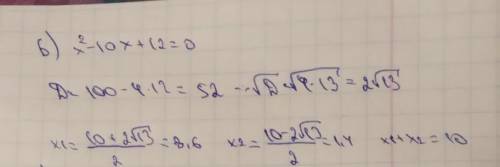 б) x²-10x+12=0
D= 100-4·12= 52 --√D √4·13= 2√13
x1= (10+2√13)/2 =8,6 x2= (10-2√13)/2 =1,4 x1+x2=10